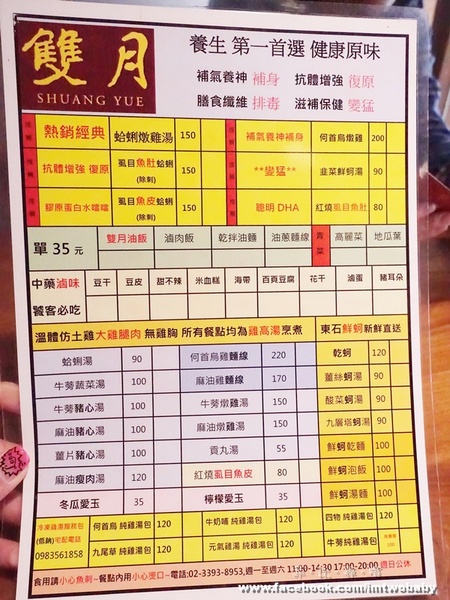 雙月
SHUANG YUE
養生 第一首選 健康原味
補氣養神 補身 抗體增強 復原
膳食纖維 排毒 滋補保健 變猛
熱銷經典 蛤蜊燉雞湯 150 補氣養神補身 何首烏燉雞 200
抗體增強 復原 虱目魚肚蛤蜊(除刺) 150 **變猛** 韭菜鮮蚵湯 90
膠原蛋白水噹噹 虱目魚皮蛤蜊(除刺) 150 聰明 DHA 紅燒虱目魚肚 80
單 35 元 雙月油飯 滷肉飯 乾拌油麵 油蔥麵線 青菜 高麗菜 地瓜葉
中藥滷味 豆干 豆皮 甜不辣 米血糕 海帶 百頁豆腐 花干 滷蛋 豬耳朵
饕客必吃
溫體仿土雞大雞腿肉 無雞胸 所有餐點均為雞高湯烹煮 東石鮮蚵新鮮直送
蛤蜊湯 90 何首烏雞麵線 220 乾蚵 120
牛蒡蔬菜湯 100 麻油雞麵線 170 薑絲蚵湯 90
牛蒡豬心湯 100 牛蒡燉雞湯 150 酸菜蚵湯 90
麻油豬心湯 100 麻油燉雞湯 150 九層塔蚵湯 90
薑片豬心湯 100 貢丸湯 55 鮮蚵乾麵 100
麻油瘦肉湯 120 紅燒虱目魚皮 80 鮮蚵泡飯 100
冬瓜愛玉 35 檸檬愛玉 35 鮮蚵湯麵 100
冷凍雞湯服務包 何首烏 純雞湯包 120 牛奶埔 純雞湯包 120 四物 純雞湯包 120
(低鈉)宅配電話
0983561858 九尾草 純雞湯包 120 元氣雞湯 純雞湯包 120 牛蒡純雞湯包 100
食用請小心魚刺~餐點內用小心燙口~電話:02-3393-8953,週一至週六 11:00-14:30 17:00-20:00 週日公休
www.facebook.com/imtwobaby